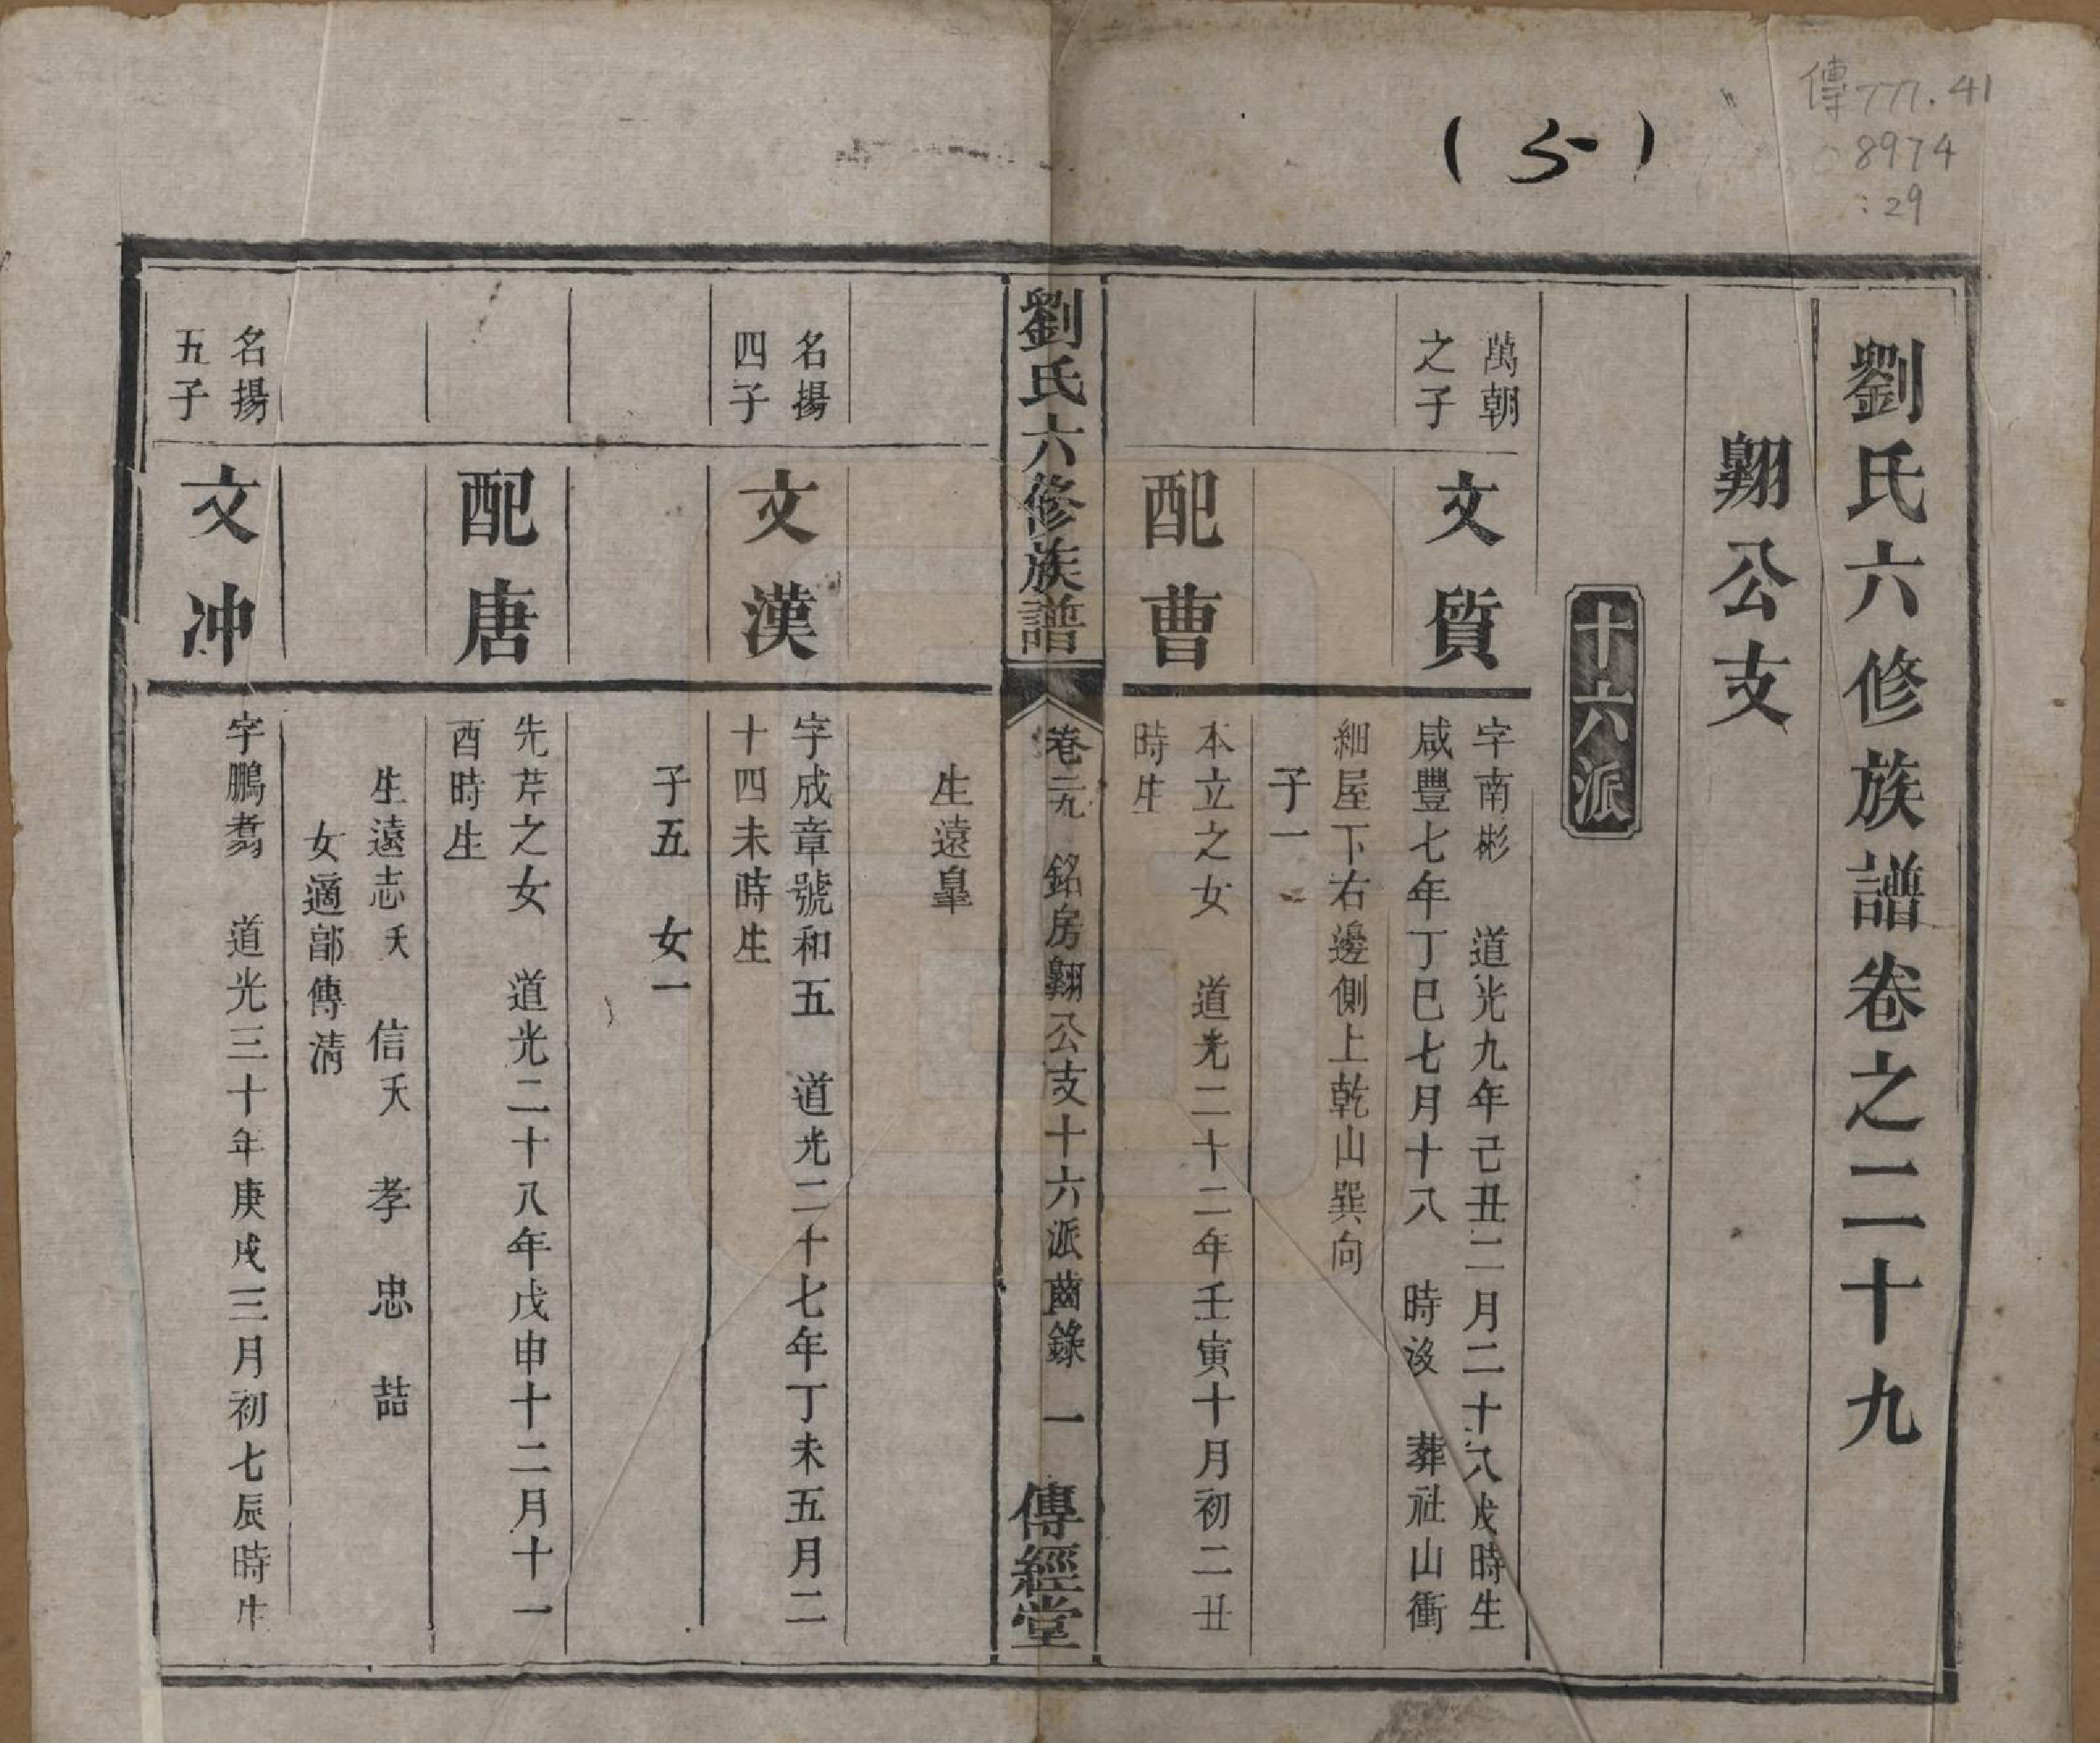 傳777.41
8974
:29
(5)
劉氏六修族譜卷之二十九
翺公支
十六派
萬朝
之子
文質
字南彬　道光九年己丑二月二十八戌時生
咸豐七年丁巳七月十八　時沒　葬社山衝
細屋下右邊側上乾山巽向
子一
配曹
本立之女　道光二十二年壬寅十月初二丑
時生
劉氏六修族譜
卷二九　銘房翺公支十六派齒錄　一
傳經堂
生遠皐
名揚
四子
文漢
字成章號和五　道光二十七年丁未五月二
十四未時生
子五　女一
配唐
先芹之女　道光二十八年戊申十二月十一
酉時生
生遠志夭　信夭　孝　忠　喆
女適鄧傳清
名揚
五子
文冲
字鵬翥　道光三十年庚戌三月初七辰時生